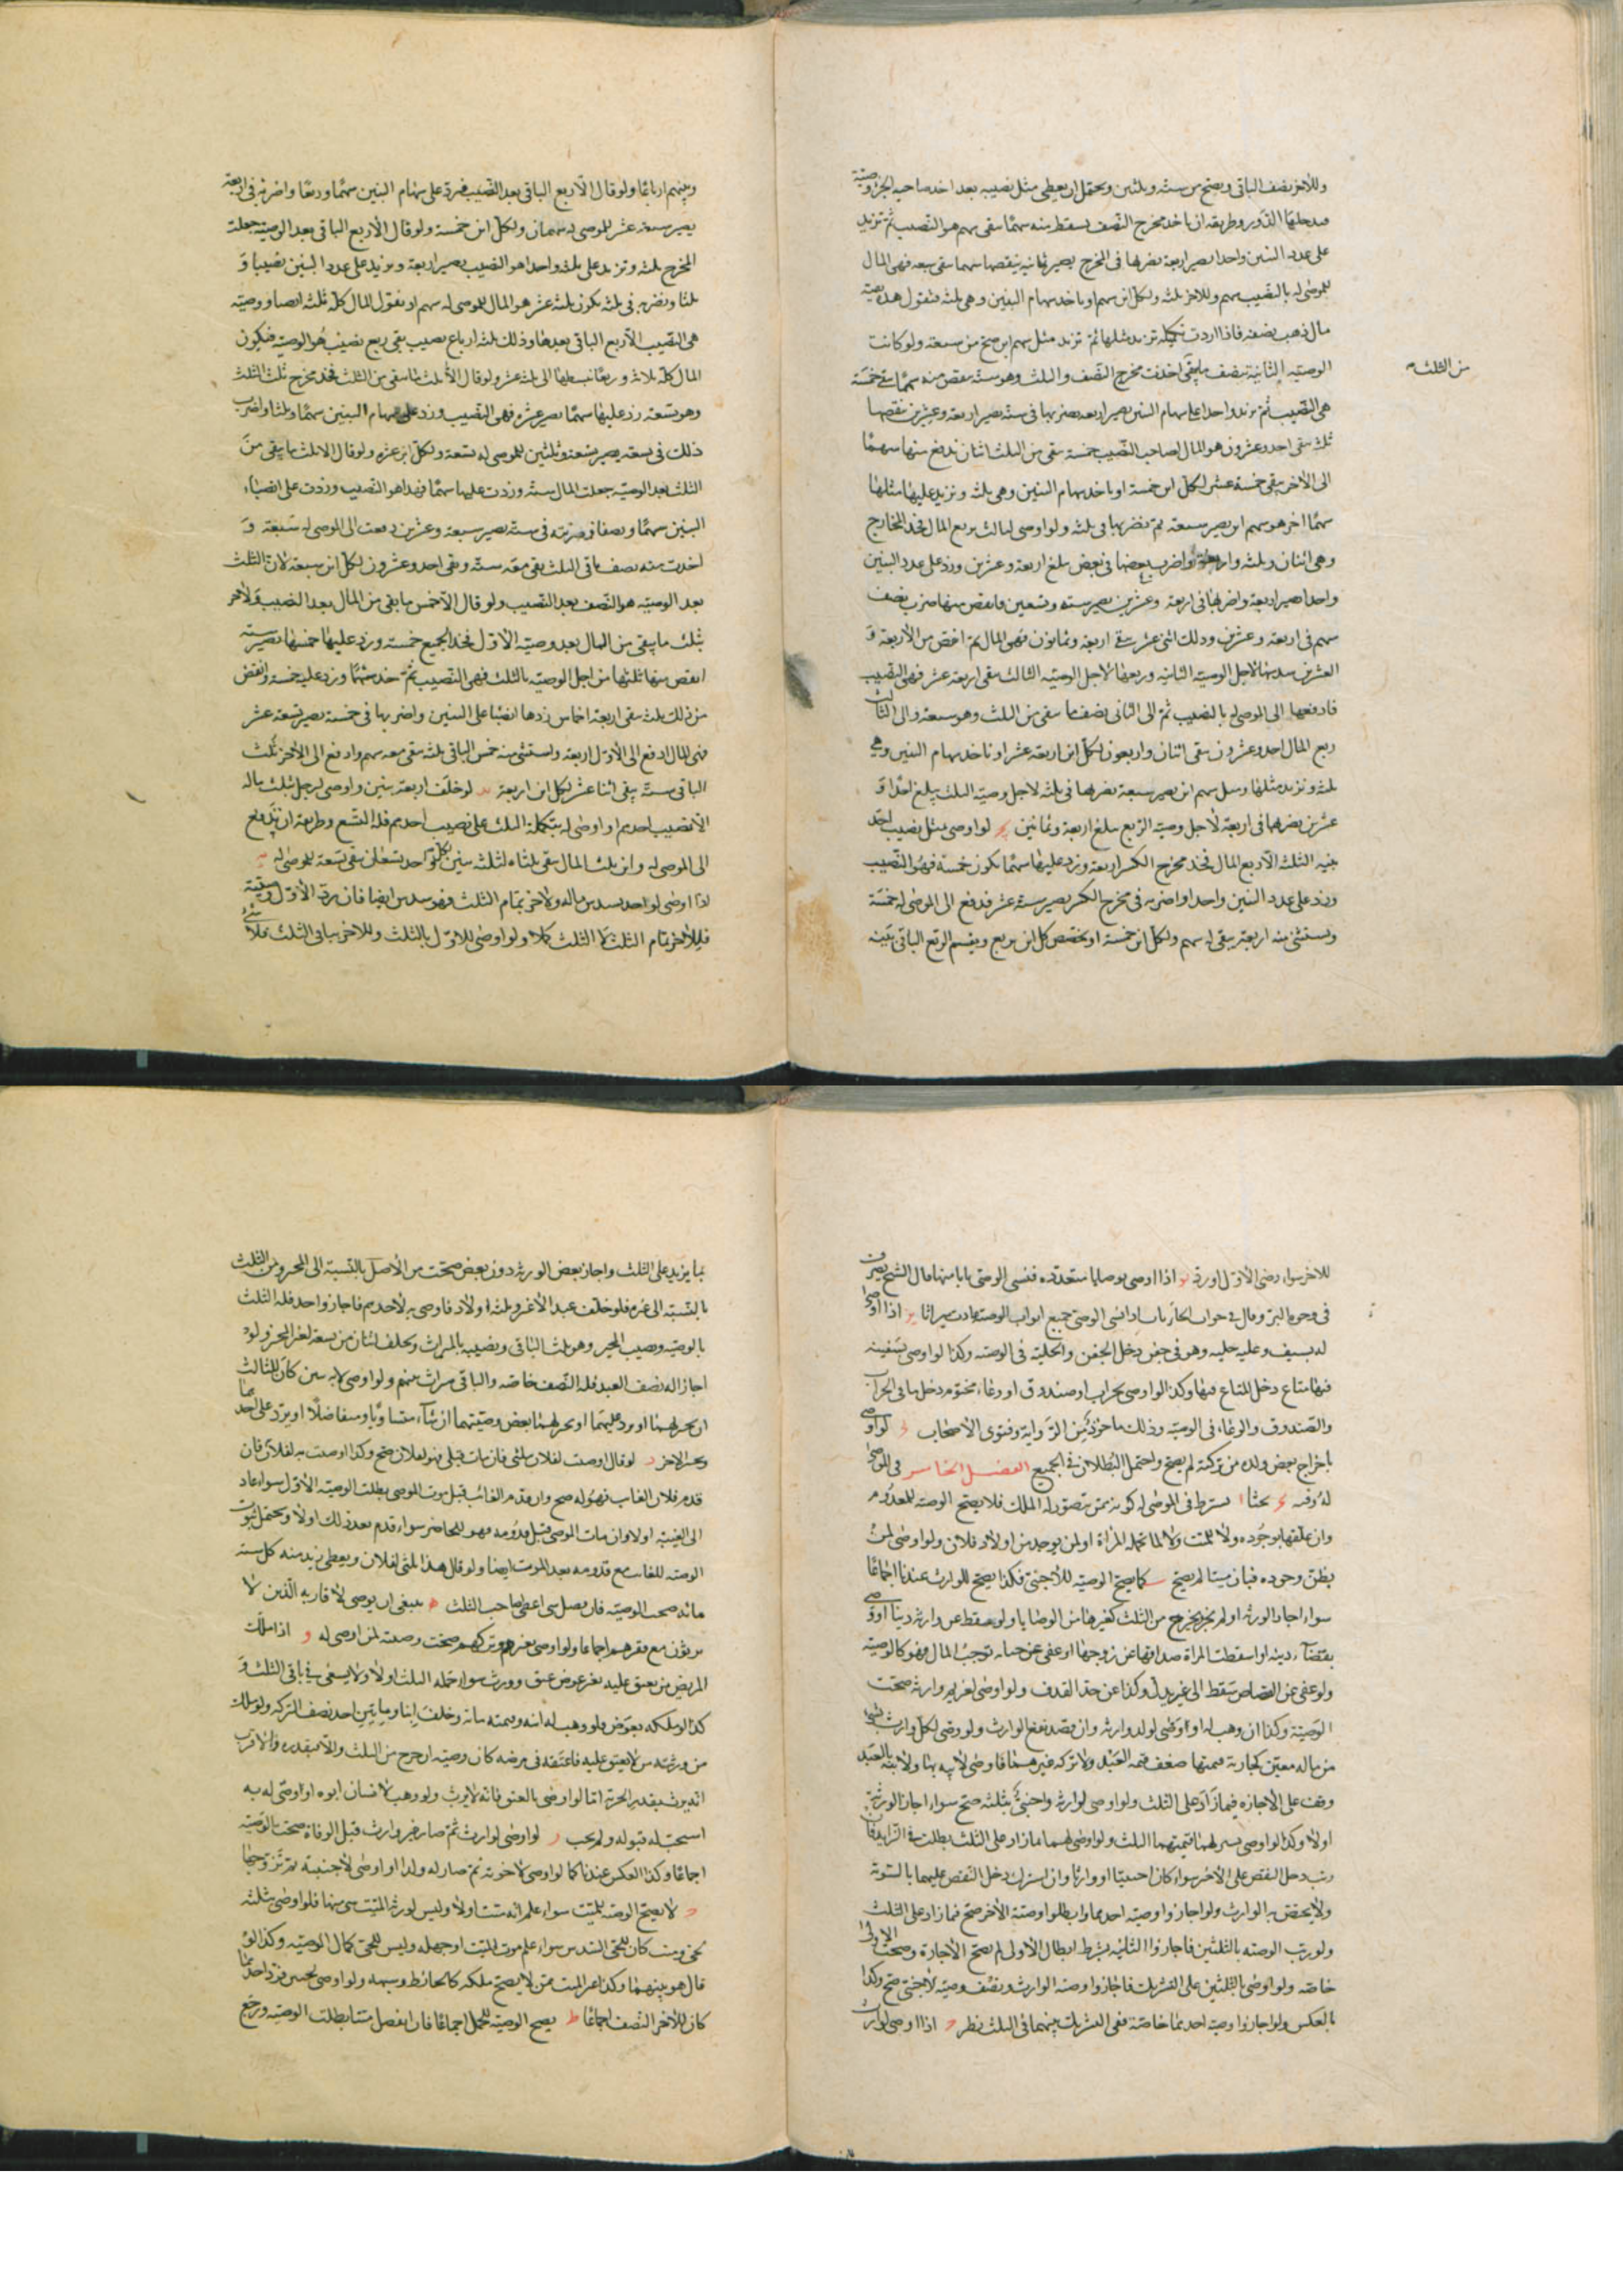 وللاخر نصف الباقي ويصح من ستة وثلثين ويحتمل ان يعطى مثل نصيبه بعد اخذ صاحب الجزء وصيته
فيدخلها الدور وطريقه ان ياخذ مخرج النصف يسقط منه سهما يبقى سهم هو النصيب ثم تزيد
على عدد البنين واحدا يصير اربعة تضربها في المخرج يصير ثمانية ينقصها سهما يبقى سبعة فهي المال
للموصى له بالنصيب سهم وللاخر ثلثة ولكل ابن سهم او ياخذ سهام البنين وهي ثلثة فتقول هذه بقية
مال ذهب نصفه فاذا اردت تكمله تزيد مثلها ثم تزيد مثل سهم ابن صح من سبعة ولو كانت
الوصية الثانية بنصف ما يبقى اخذت مخرج النصف والثلث وهو ستة ينقص منه سهما يبقى خمسة
من الثلث
هي النصيب ثم تزيد واحدا على سهام البنين يصير اربعة تضربها في ستة يصير اربعة وعشرين تنقصها
ثلثة يبقى احد وعشرون هو المال لصاحب النصيب خمسة يبقى من الثلث اثنان يدفع منها سهما
الى الاخر يبقى خمسة عشر لكل ابن خمسة او ياخذ سهام البنين وهي ثلثة وتزيد عليها مثلها
سهما اخر هو سهم ابن يصير سبعة ثم تضربها في ثلثة ولو اوصى لثالث بربع المال فخذ المخارج
وهي اثنان وثلثة واربعة واضرب بعضها في بعض يبلغ اربعة وعشرين وزد على عدد البنين
واحدا يصير اربعة واضربها في اربعة وعشرين يصير ستة وتسعين فانقص منها ضرب نصف
سهم في اربعة وعشرين وذلك اثنى عشر يبقى اربعة وثمانون فهي المال ثم انقص من الاربعة و
العشرين سدسها لاجل الوصية الثانية وربعها لاجل الوصية الثالثة يبقى اربعة عشر فهي النصيب
فادفعها الى الموصى له بالنصيب ثم الى الثاني نصف ما يبقى من الثلث وهو سبعة والى الثالث
ربع المال احد وعشرون يبقى اثنان واربعون لكل ابن اربعة عشر او تاخذ سهام البنين وهي
ثلثة وتزيد مثلها ومثل سهم ابن يصير سبعة تضربها في ثلثة لاجل وصية الثلث يبلغ احدا و
عشرين تضربها في اربعة لاجل وصية الربع يبلغ اربعة وثمانين لو اوصى بمثل نصيب احد
بنيه الثلثة الا ربع المال فخذ مخرج الكسر اربعة وزد عليها سهما يكون خمسة فهو النصيب
وزد على عدد البنين واحدا واضربه في مخرج الكسر يصير ستة عشر فدفع الى الموصى له خمسة
ويستثنى منه اربعة يبقى له سهم ولكل ابن خمسة او يختص كل ابن بربع ويقسم الربع الباقي بينه
وبينهم ارباعا ولو قال الا ربع الباقي بعد النصيب فزد على سهام البنين سهما وربعا واضربه في اربعة
يصير سبعة عشر للموصى له سهمان ولكل ابن خمسة ولو قال الا ربع الباقي بعد الوصية جعلت
المخرج ثلثة وتزيد على ثلثة واحدا هو النصيب يصير اربعة وتزيد على عدد البنين نصيبا و
ثلثا وتضربه في ثلثة يكون ثلثة عشر هو المال للموصى له سهم او نقول المال كله ثلثة انصبا ووصية
هي النصيب الا ربع الباقي بعدها وذلك ثلثة ارباع نصيب يبقى ربع نصيب هو الوصية فيكون
المال كله ثلاثة وربعا تبسطها الى ثلثة عشر ولو قال الا ثلث ما يبقى من الثلث فخذ مخرج ثلث الثلث
وهو تسعة زد عليها سهما يصير عشرة فهي النصيب وزد على سهام البنين سهما وثلثا واضرب
ذلك في تسعة يصير تسعة وثلثين للموصى له تسعة ولكل ابن عشرة ولو قال الا ثلث ما يبقى من
الثلث بعد الوصية جعلت المال ستة وزدت عليها سهما فهذا هو النصيب وزدت على انصباء
البنين سهما ونصفا وضربته في ستة يصير سبعة وعشرين دفعت الى الموصى له سبعة و
اخذت منه نصف باقي الثلث يبقى معه ستة وبقى احد وعشرون لكل ابن سبعة لان الثلث
بعد الوصية هو النصف بعد النصيب ولو قال الا خمس ما بقى من المال بعد النصيب ولاخر
بثلث ما يبقى من المال بعد وصية الاول فخذ الجميع خمسة وزد عليها خمسها يصير ستة
انقص منها ثلثها من اجل الوصية بالثلث فهي النصيب ثم خذ سهما وزد عليه خمسه وانقص
من ذلك ثلثه يبقى اربعة اخماس زدها انصبا على البنين واضربها في خمسة يصير تسعة عشر
فهي المال ادفع الى الاول اربعة واستثنى منه خمس الباقي ثلثة يبقى معه سهم وادفع الى الاخر ثلث
الباقي ستة يبقى اثنا عشر لكل ابن اربعة لو خلف اربعة بنين واوصى لرجل بثلث ماله
الا نصيب احدهم او اوصى له بتكملة الثلث على نصيب احدهم فله التسع وطريقه ان تدفع
الى الموصى له وابن ثلث المال يبقى ثلثاه لثلثة بنين لكل واحد تسعان يبقى تسعة للموصى له
اذا اوصى لواحد بسدس ماله ولاخر بتمام الثلث فهو سدس ايضا فان رد الاول وصيته
فللاخر تمام الثلث كملا ولو اوصى للاول بالثلث وللاخر بباقي الثلث فلا شيء
للاخر سواء رضى الاول او رد اذا اوصى بوصايا متعددة فنسى الوصى بابا منها قال الشيخ يصرف
في وجوه البر وقال في جواب الحائريات اذا نسى الوصى جميع ابواب الوصية عادت ميراثا اذا اوصى
له بسيف وعليه حلية وهو في جفن دخل الجفن والحلية في الوصية وكذا لو اوصى بسفينة
فيها متاع دخل المتاع فيها وكذا لو اوصى بجراب او صندوق او وعاء مختوم دخل ما في الجراب
والصندوق والوعاء في الوصية وذلك ماخوذ من الرواية وفتوى الاصحاب لو اوصى
باخراج بعض ولده من تركته لم يصح واحتمل البطلان في الجميع الفصل الخامس في الموصى
له وفيه بحثا يشترط في الموصى له كونه ممن يتصور له الملك فلا يصح الوصية للمعدوم
وان علقها بوجوده ولا للميت ولا لما تحمله المراة او لمن يوجد من اولاد فلان ولو اوصى لمن
يظن وجوده فبان ميتا لم يصح كما يصح الوصية للاجنبي فكذا يصح للوارث عندنا اجماعا
سواء اجاز الورثة او لم يجز يخرج من الثلث كغيرها من الوصايا ولو سقط عن وارثه دينا او وصى
بقضاء دينه او اسقطت المراة صداقها عن زوجها او عفى عن جناية توجب المال فهو كالوصية
ولو عفى عن القصاص سقط الى غير بدل وكذا عن حد القذف ولو اوصى لغريم وارثه صحت
الوصية وكذا ان وهب له او اوصى لولد وارثه وان قصد نفع الوارث ولو وصى لكل وارث بشيء
من ماله معين كجارية قيمتها ضعف قيمة العبد ولا تركة غيرهما فاوصى لابنه بها ولابنته بالعبد
وقف على الاجازة فيما زاد على الثلث ولو اوصى لوارث واجنبي بثلثه صح سواء اجاز الورثة
اولا وكذا لو اوصى لهما قيمتهما الثلث ولو اوصى لهما بما زاد على الثلث بطلت في الزايد فان
رتب دخل النقص على الاخر سواء كان اجنبيا او وارثا وان اشترك دخل النقص عليهما بالسوية
ولا يختص به الوارث ولو اجازوا وصية احدهما وابطلوا وصية الاخر صح فيما زاد على الثلث
ولو رتب الوصية بالثلثين فاجازوا الثانية بشرط ابطال الاولى لم يصح الاجازة وصحت الاولى
خاصة ولو اوصى بالثلثين على التشريك فاجازوا وصية الوارث ونصف وصية الاجنبي صح وكذا
بالعكس ولو اجازوا وصية احدهما خاصة ففي التشريك بينهما في الثلث نظر اذا اوصى لوارث
بما يزيد على الثلث واجاز بعض الورثة دون بعض صحت من الاصل بالنسبة الى المجيز ومن الثلث
بالنسبة الى غيره فلو خلف عبدا لا غير وثلثة اولاد فاوصى به لاحدهم فاجاز واحد فله الثلث
بالوصية ونصيب المجيز وهو ثلث الباقي ونصيبه بالميراث ويخلف اثنان من تسعة لغير المجيز ولو
اجاز له نصف العبد فله النصف خاصة والباقي ميراث بينهم ولو اوصى لابنين كان للثالث
ان يجيز لهما او يرد عليهما او يجيز لهما بعض وصيتهما ان شاء متساويا او متفاضلا او يرد على احدهما
ويجيز الاخر لو قال اوصيت لفلان بثلثي فان مات قبلي فهو لفلان صح وكذا اوصيت به لفلان فان
قدم فلان الغايب فهو له صح وان قدم الغائب قبل موت الموصى بطلت الوصية الاول سواء عاد
الى الغيبة اولا وان مات الموصى قبل قدومه فهو للحاضر سواء قدم بعد ذلك اولا ويحتمل ثبوت
الوصية للغايب مع قدومه بعد الموت ايضا ولو قال هذا لفلان ويعطى زيد منه كل سنة
مائة صحت الوصية فان فضل شي اعطى صاحب الثلث ينبغي ان يوصى لاقاربه الذين لا
يرثون مع فقرهم اجماعا ولو اوصى لغيرهم وتركهم صحت وصيته لمن اوصى له اذا ملك
المريض من يعتق عليه بغير عوض عتق وورث سواء حمله الثلث اولا ولا يسعى في باقي الثلث و
كذا لو ملكه بعوض فلو وهب له ابنه وقيمته مائة وخلف ابنا ومايتين احد نصف التركة ولو ملك
من ورثته من لا يعتق عليه فاعتقه في مرضه كان وصيته ان خرج من الثلث والا فبقدره والاقرب
انه يرث بقدر الحرية اما لو اوصى بالعتق فانه لا يرث ولو وهب لانسان ابوه او اوصى له به
استحب له قبوله ولم يجب لو اوصى لوارث ثم صار غير وارث قبل الوفاة صحت الوصية
اجماعا وكذا العكس عندنا كما لو اوصى لاخوته ثم صار له ولد او اوصى لاجنبية ثم تزوجها
لا يصح الوصية للميت سواء علم انه ميت اولا وليس لورثة الميت شي منها فلو اوصى بثلثه
لحي وميت كان للحي السدس سواء علم موت الميت او جهله وليس للحي كمال الوصية وكذا لو
قال هو بينهما وكذا غير الميت ممن لا يصح ملكه كالحائط وبهيمة ولو اوصى لحيين فرد احدهما
كان للاخر النصف اجماعا يصح الوصية للحمل اجماعا فان انفصل ميتا بطلت الوصية ورجع